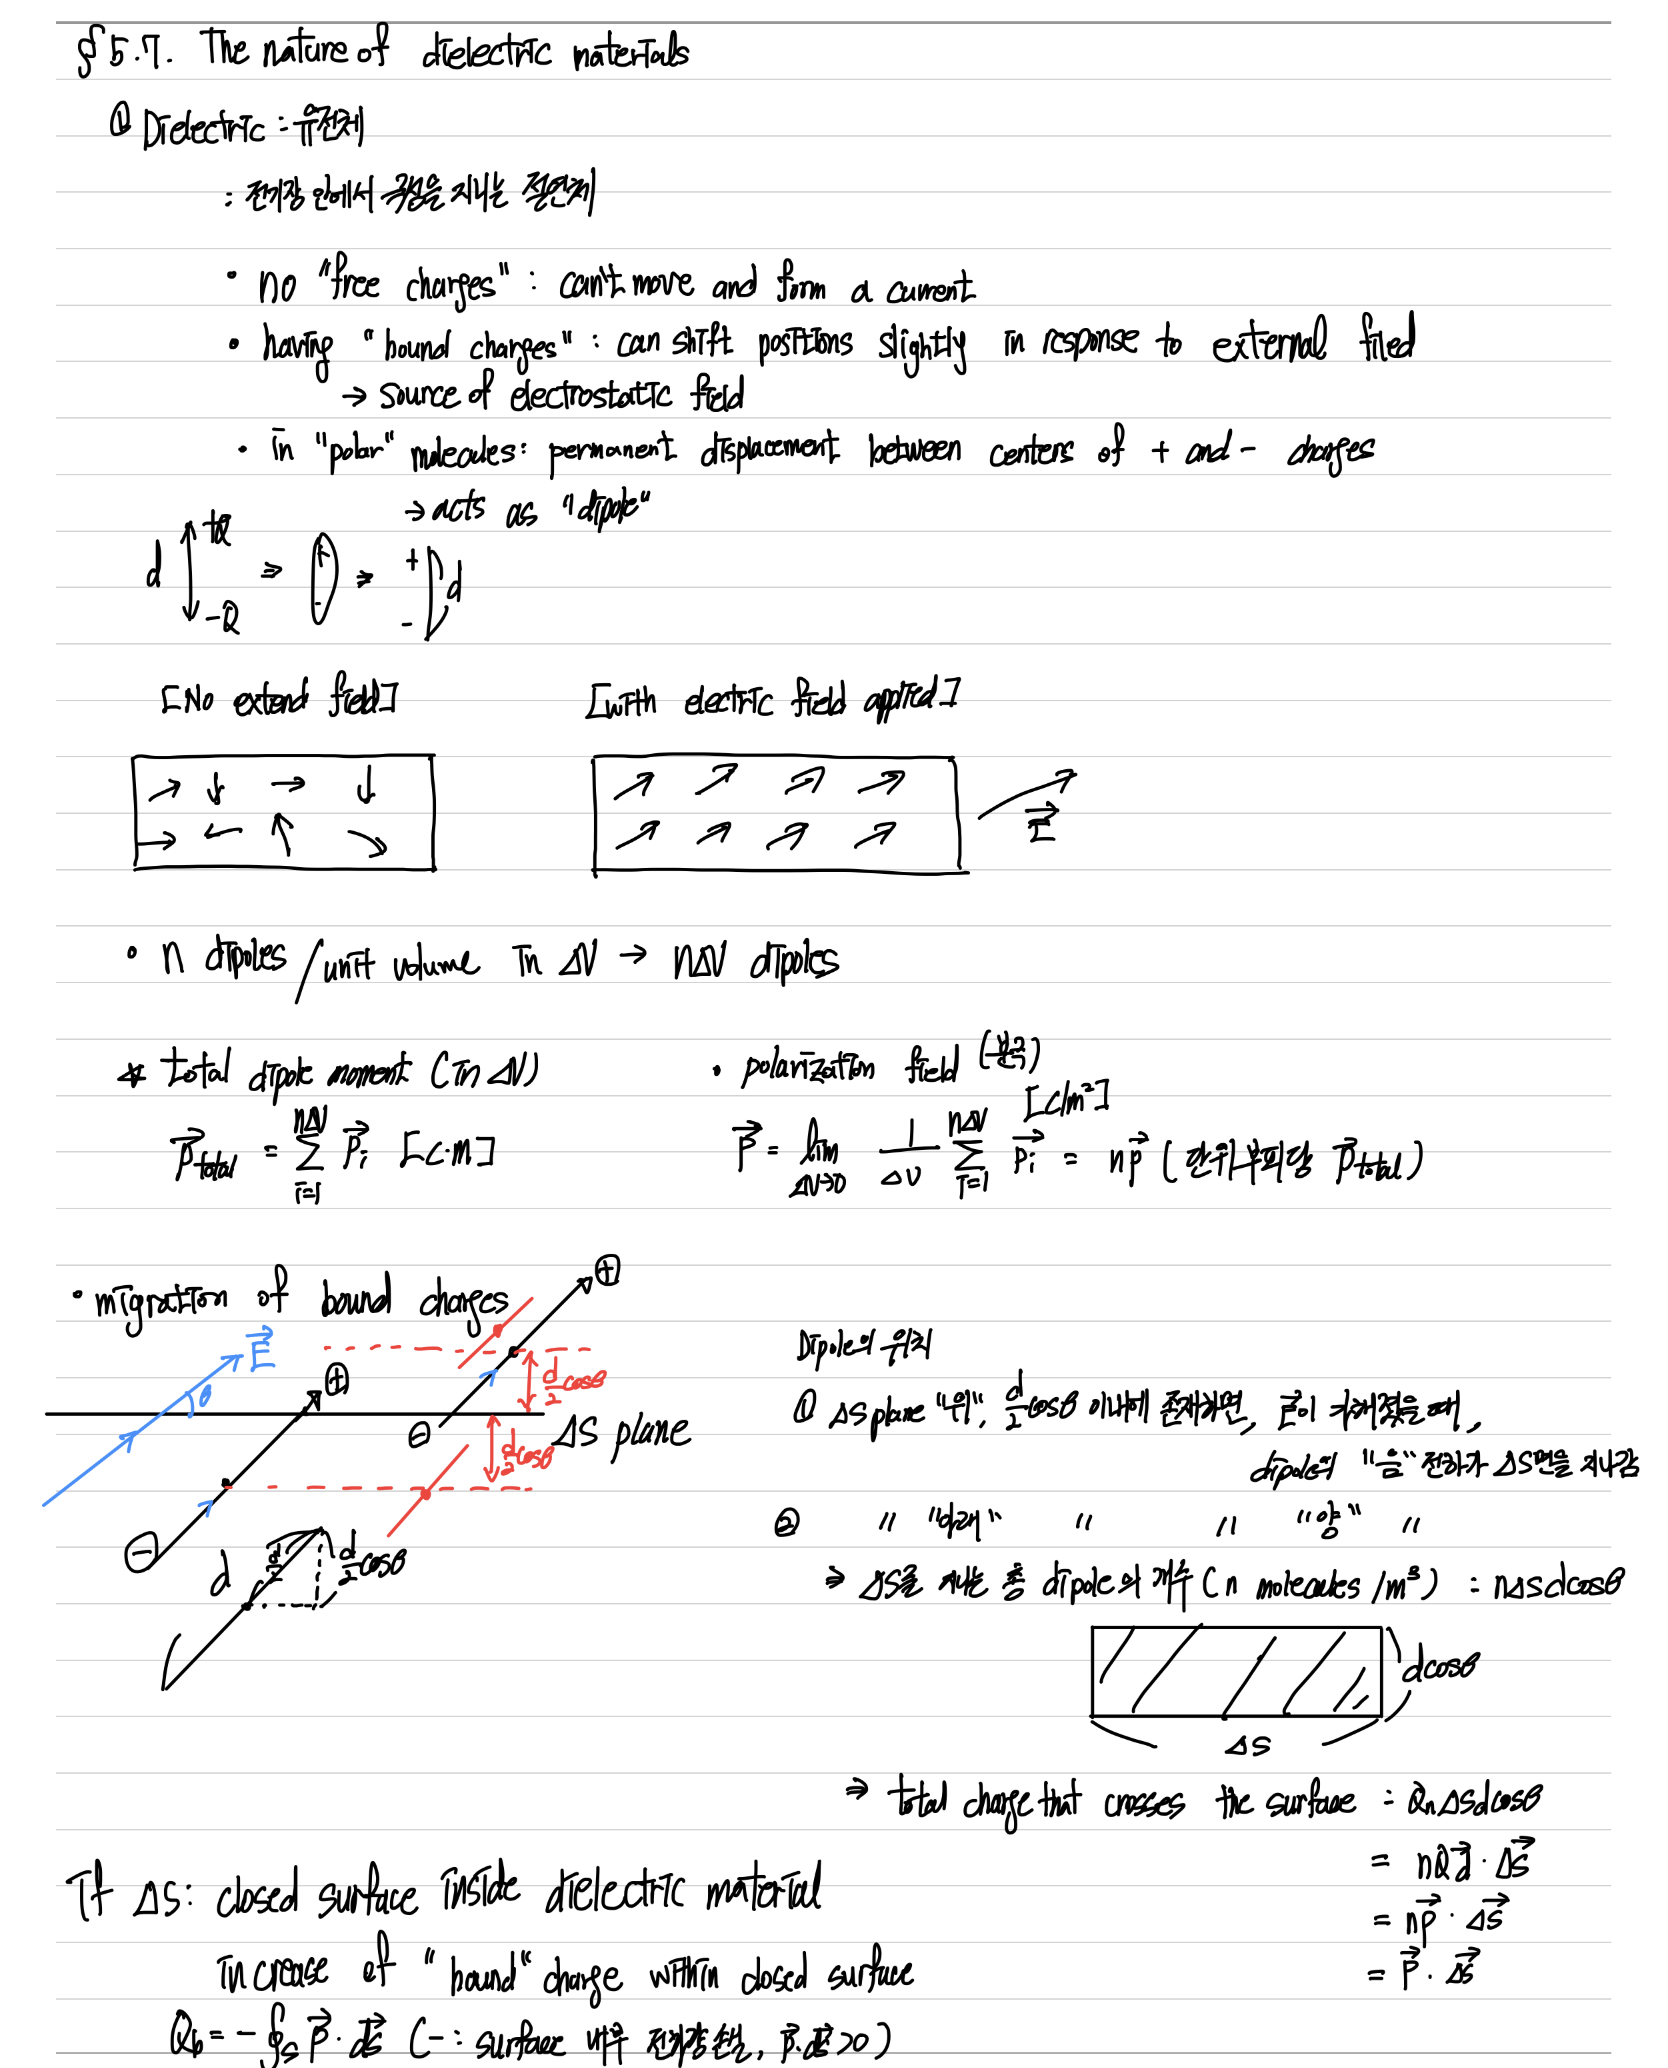 § 5.7. The nature of dielectric materials
① Dielectric : 유전체
: 전기장 안에서 극성을 지니는 절연체
• no "free charges" : can't move and form a current
• having "bound charges" : can shift positions slightly in response to external filed
→ source of electrostatic field
• in "polar" molecules: permanent displacement between centers of + and - charges
→ acts as "dipole"
d +Q -Q ⇒ + - ⇒ + - d
[No extend field] [with electric field applied]
E
• n dipoles / unit volume in ΔV → nΔV dipoles
☆ total dipole moment (in ΔV)
p total = Σ i=1 nΔV p i [C·m]
• polarization field (분극) [C/m²]
P = lim ΔV→0 1/ΔV Σ i=1 nΔV p i = np (단위부피당 p total)
• migration of bound charges
E θ + + - - d/2 cosθ d/2 cosθ ΔS plane
d d/2 d/2 cosθ
Dipole의 위치
① ΔS plane "위", d/2 cosθ 이내에 존재하면, E이 가해졌을 때,
dipole의 "음" 전하가 ΔS면을 지나감
② " "아래" " " "양" "
⇒ ΔS을 지나는 총 dipole의 개수 (n molecules /m³) : nΔSdcosθ
dcosθ
ΔS
⇒ total charge that crosses the surface : QnΔSdcosθ
= nQd · ΔS
= np · ΔS
= P · ΔS
If ΔS: closed surface inside dielectric material
increase of "bound" charge within closed surface
Qb = - ∮s P · ds (- : surface 내부 손실, P·ds > 0)